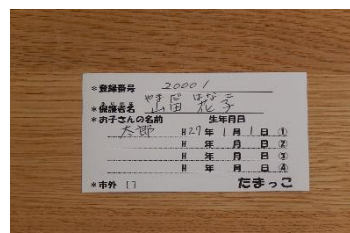 *登録番号 20001
やまだ はなこ
*保護者名 山留 花子
*お子さんの名前 生年月日
太郎 H27年1月1日①
H 年 月 日②
H 年 月 日③
H 年 月 日④
*市外 [] たまっこ